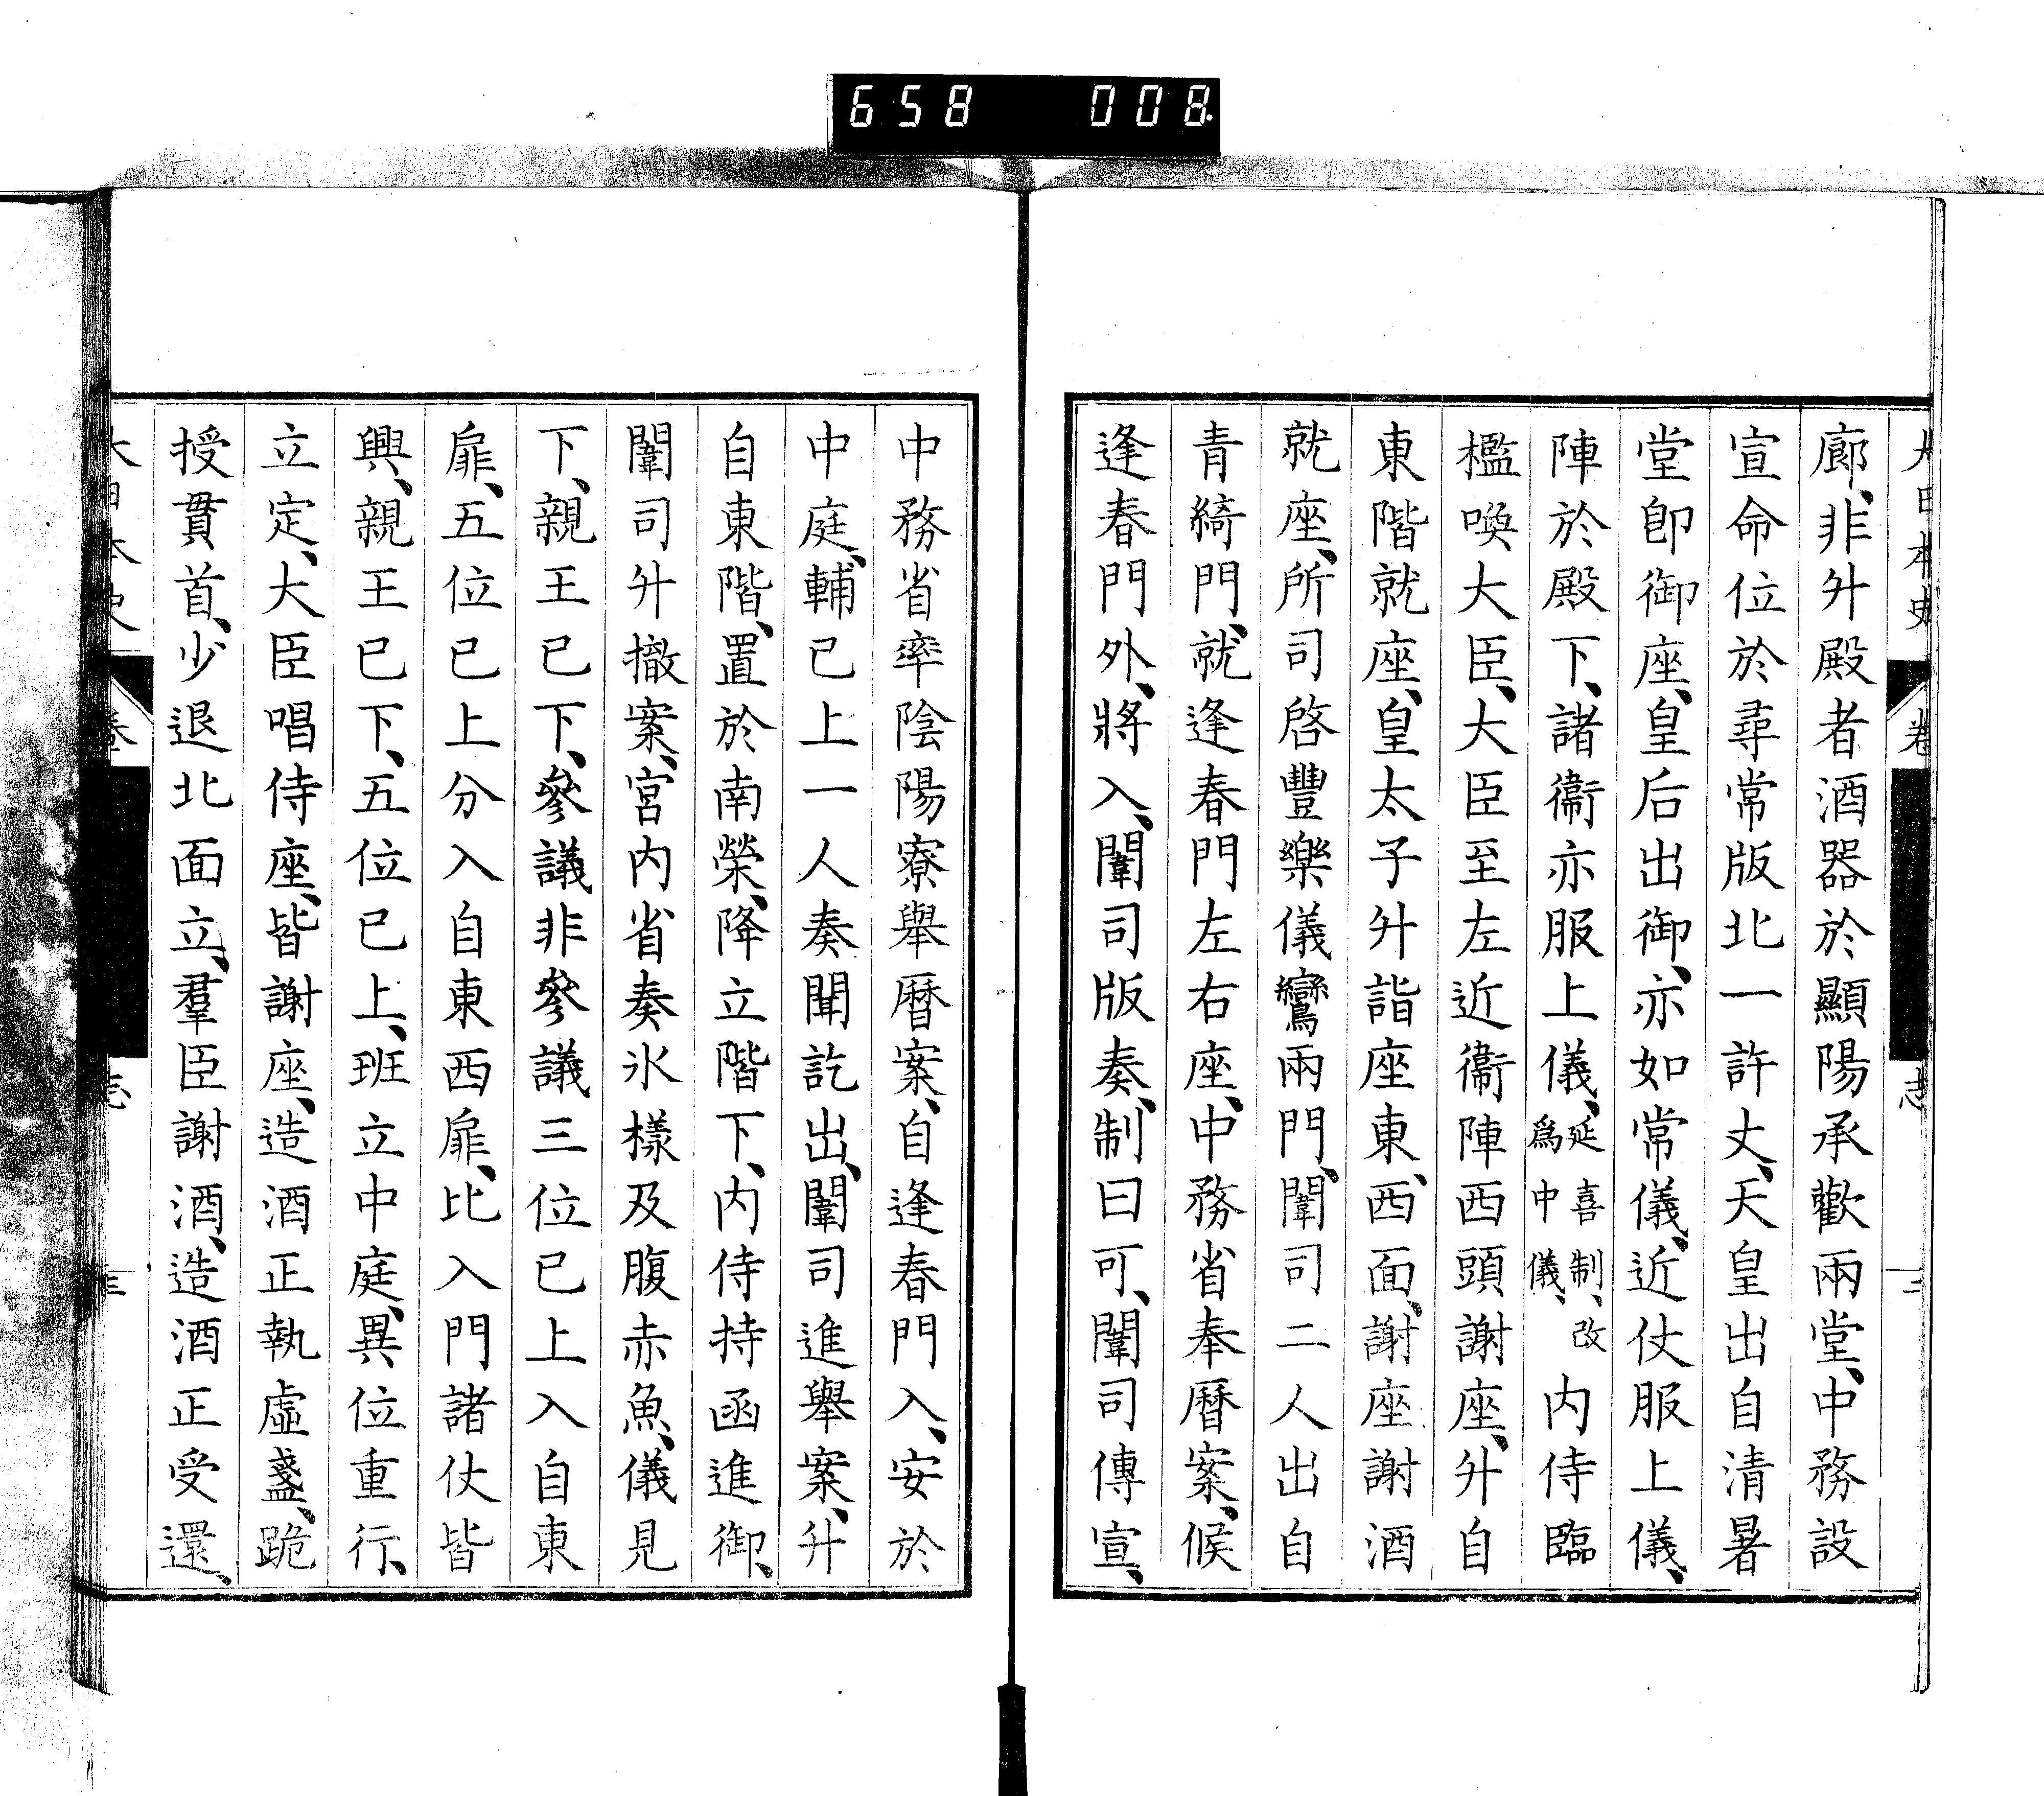 658 008
大日本史 卷 志 三
廊、非升殿者酒器於顯陽承歡兩堂、中務設
宣命位於尋常版北一許丈、天皇出自清暑
堂卽御座、皇后出御、亦如常儀、近仗服上儀、
陣於殿下、諸衞亦服上儀、延喜制、改爲中儀、內侍臨
檻喚大臣、大臣至左近衞陣西頭謝座、升自
東階就座、皇太子升詣座東、西面、謝座謝酒
就座、所司啓豐樂儀鸞兩門、闈司二人出自
青綺門、就逢春門左右座、中務省奉曆案、候
逢春門外、將入、闈司版奏、制曰可、闈司傳宣、
中務省率陰陽寮舉曆案、自逢春門入、安於
中庭、輔已上一人奏聞訖出、闈司進舉案、升
自東階、置於南榮、降立階下、內侍持函進御、
闈司升撤案、宮內省奏氷樣及腹赤魚、儀見
下、親王已下、參議非參議三位已上入自東
扉、五位已上分入自東西扉、比入門諸仗皆
興、親王已下、五位已上、班立中庭、異位重行、
立定、大臣唱侍座、皆謝座、造酒正執虛盞、跪
授貫首、少退北面立、羣臣謝酒、造酒正受還、
大日本史 卷 志